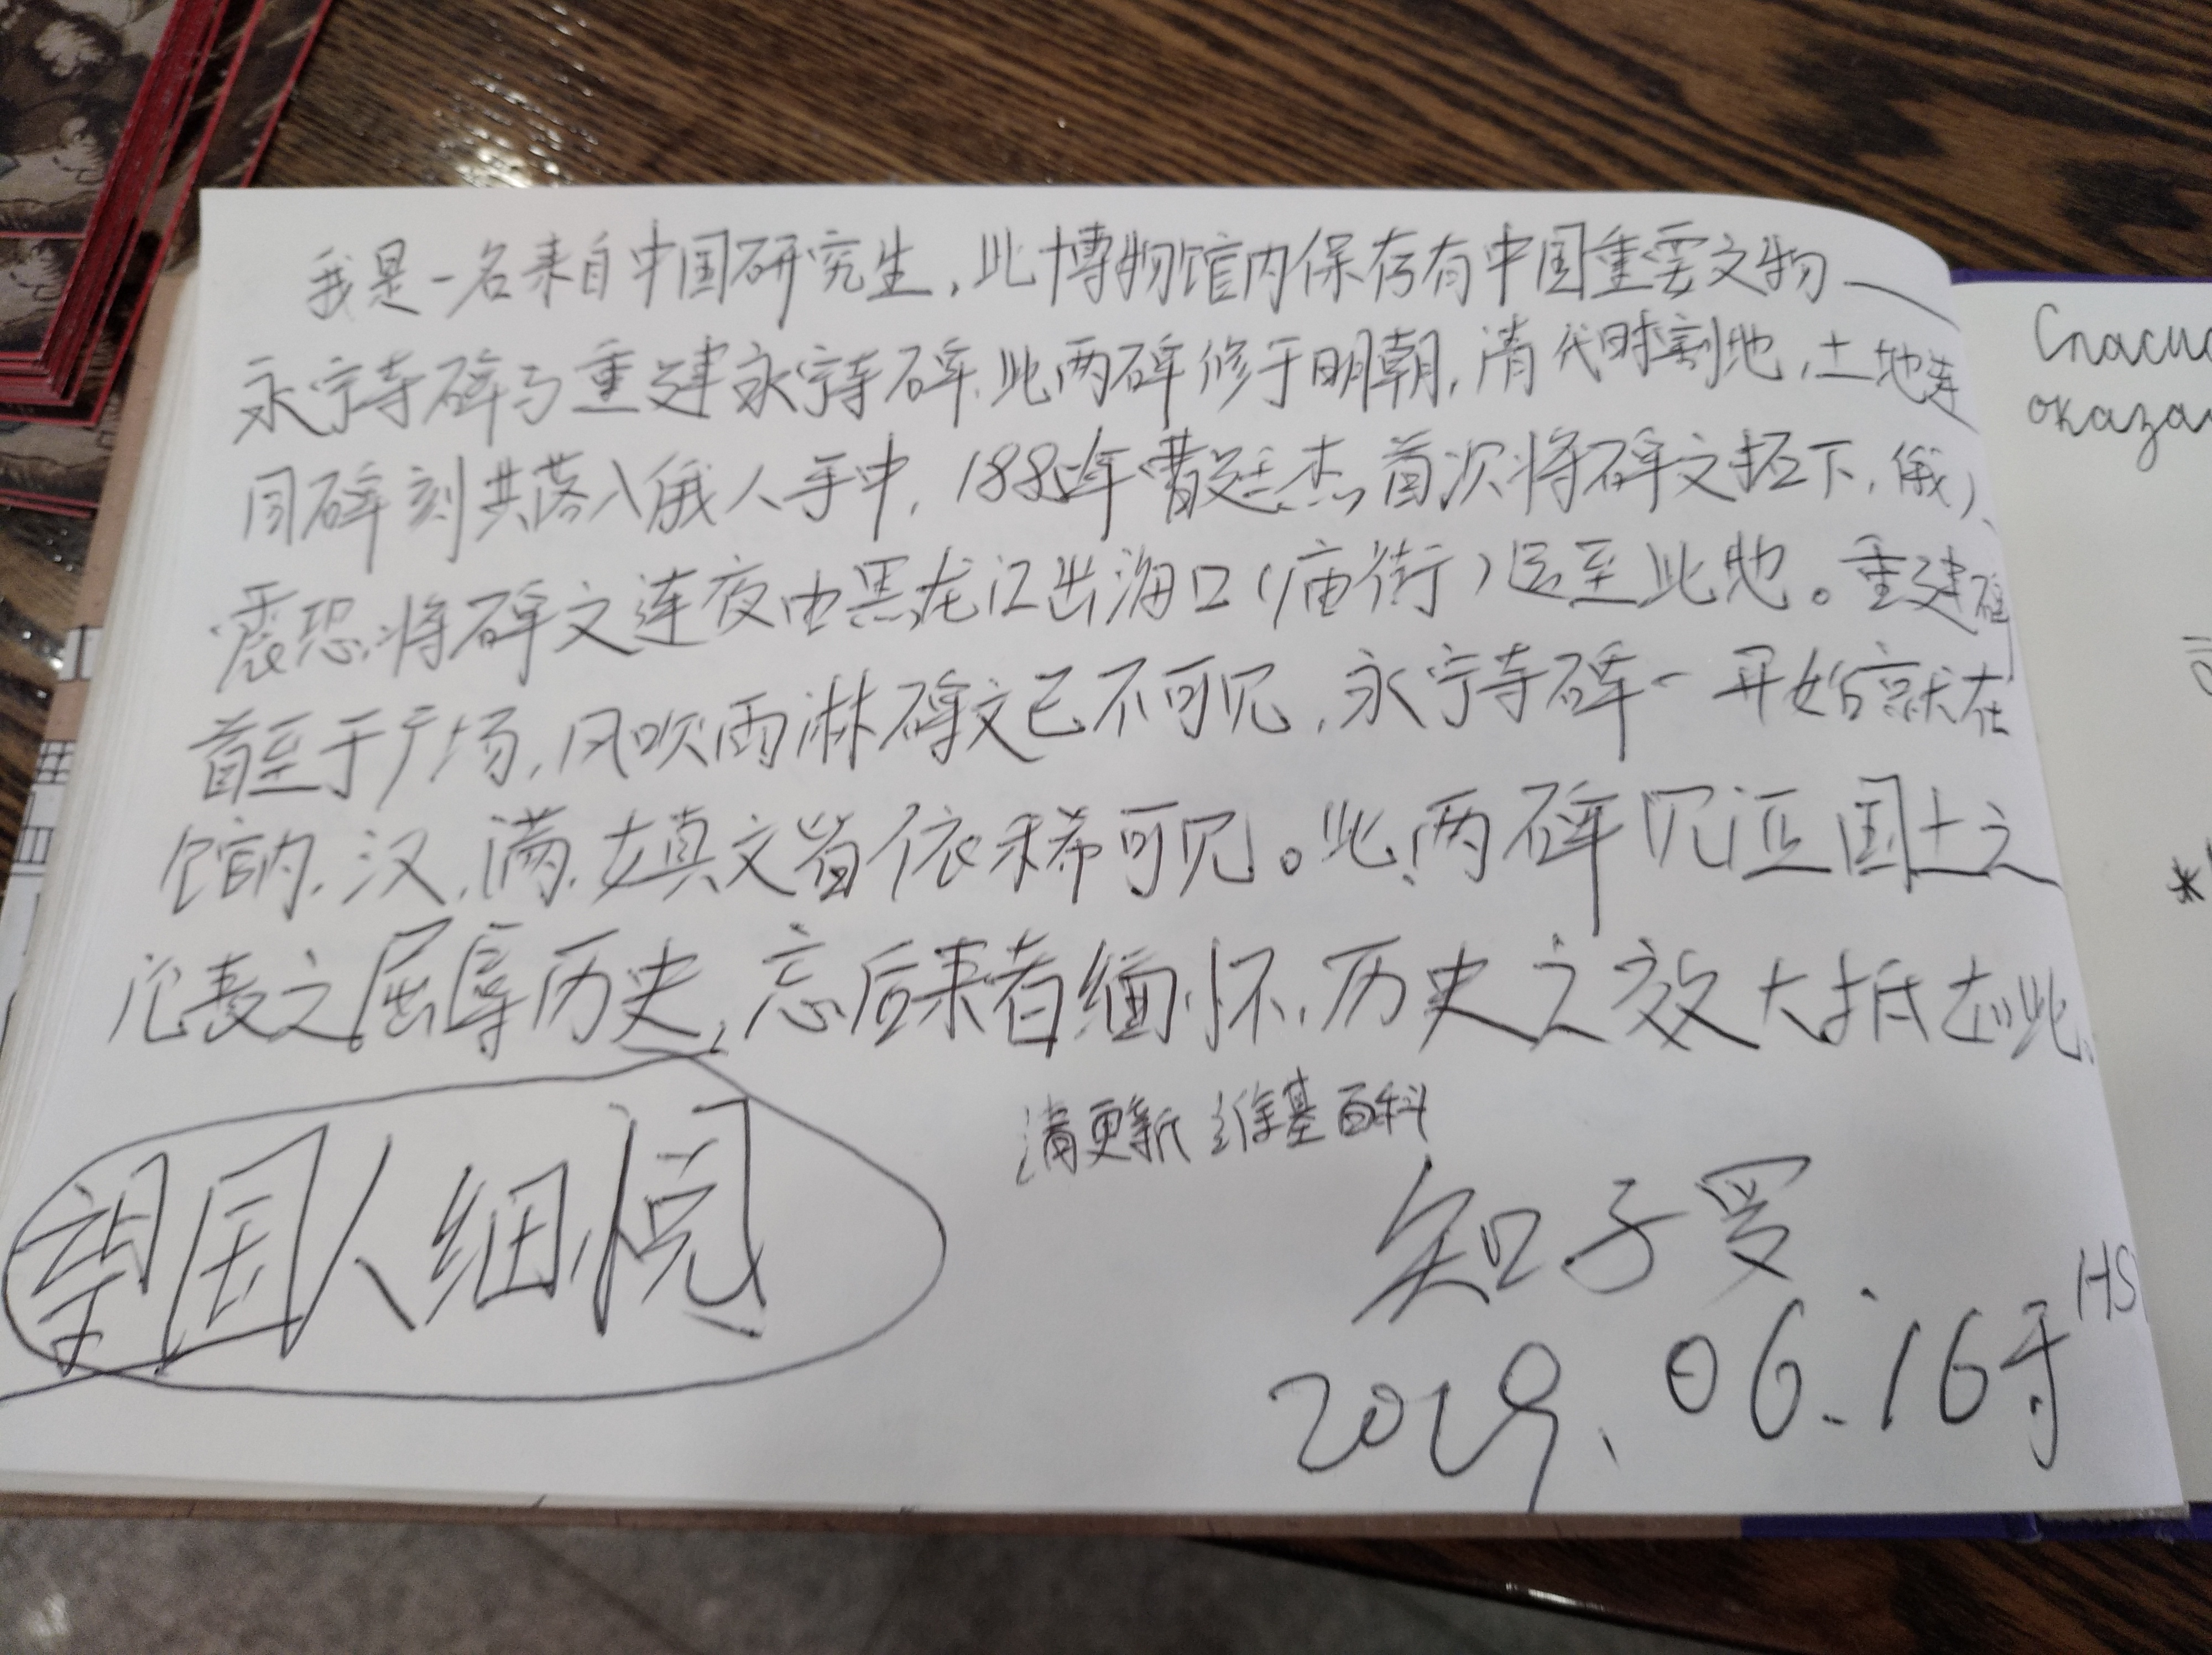 我是一名来自中国研究生，此博物馆内保存有中国重要文物——
永宁寺碑与重建永宁寺碑.此两碑修于明朝,清代时割地,土地连
同碑刻共落入俄人手中,1885年曹廷杰首次将碑文拓下,俄人
震恐,将碑文连夜由黑龙江出海口(庙街)运至此地。重建碑
首至于广场,风吹雨淋碑文已不可见,永宁寺碑一开始就在
馆内.汉.满.女真文皆依稀可见。此两碑见证国土之
沦丧之屈辱历史,忘后来者缅怀.历史之效大抵在此.
请更新维基百科
望国人细阅
知子罗
06.16于HS
Спаси
оказа